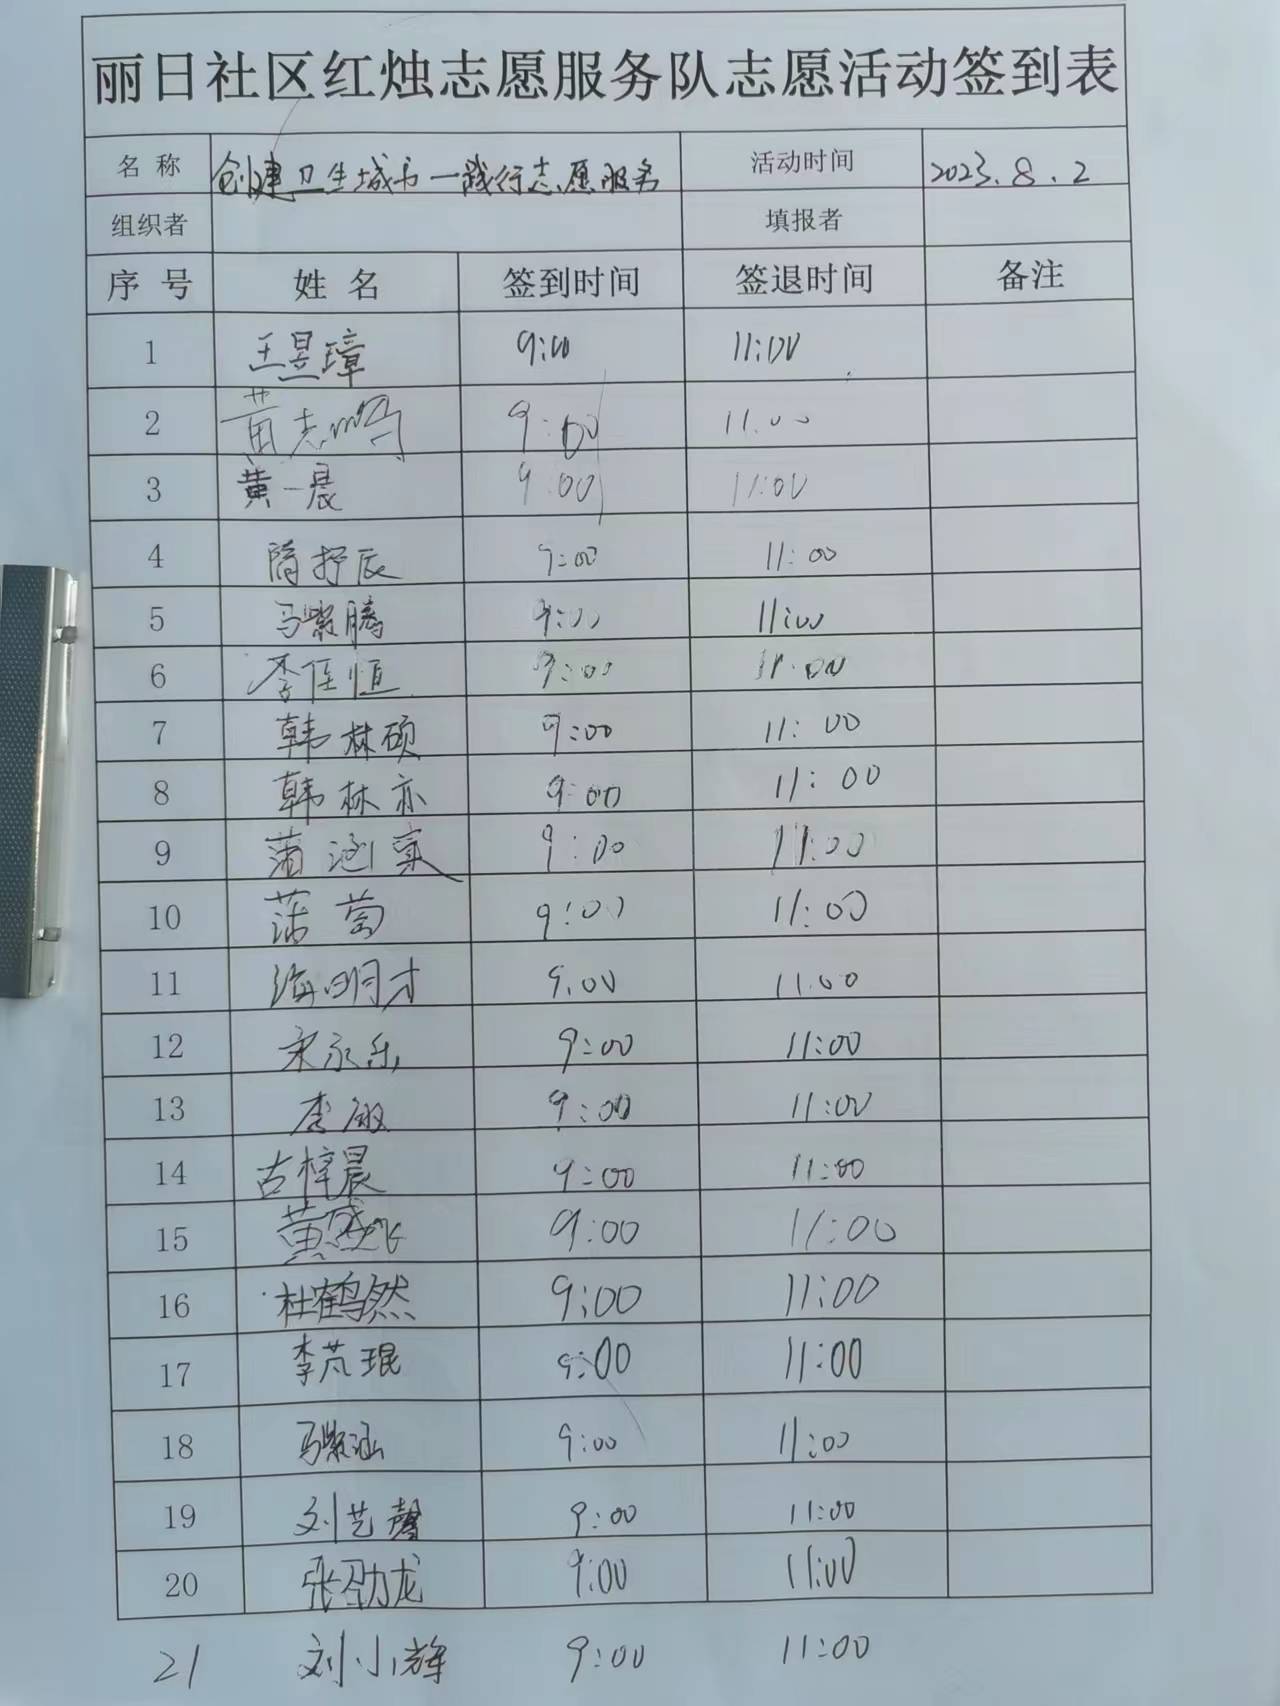 丽日社区红烛志愿服务队志愿活动签到表
名称 创建卫生城市一践行志愿服务 活动时间 2023.8.2
组织者 填报者
序号 姓名 签到时间 签退时间 备注
1 王昱璋 9:00 11:00
2 黄志鸣 9:00 11:00
3 黄一晨 9:00 11:00
4 隋抒辰 9:00 11:00
5 马紫腾 9:00 11:00
6 李佳恒 9:00 11:00
7 韩林硕 9:00 11:00
8 韩林亦 9:00 11:00
9 蒲涵 9:00 11:00
10 蒲萄 9:00 11:00
11 明才 9:00 11:00
12 宋永乐 9:00 11:00
13 李敏 9:00 11:00
14 古梓晨 9:00 11:00
15 黄盛飞 9:00 11:00
16 杜鹤然 9:00 11:00
17 李芃琨 9:00 11:00
18 马紫涵 9:00 11:00
19 刘艺馨 9:00 11:00
20 张劭龙 9:00 11:00
21 刘小辉 9:00 11:00